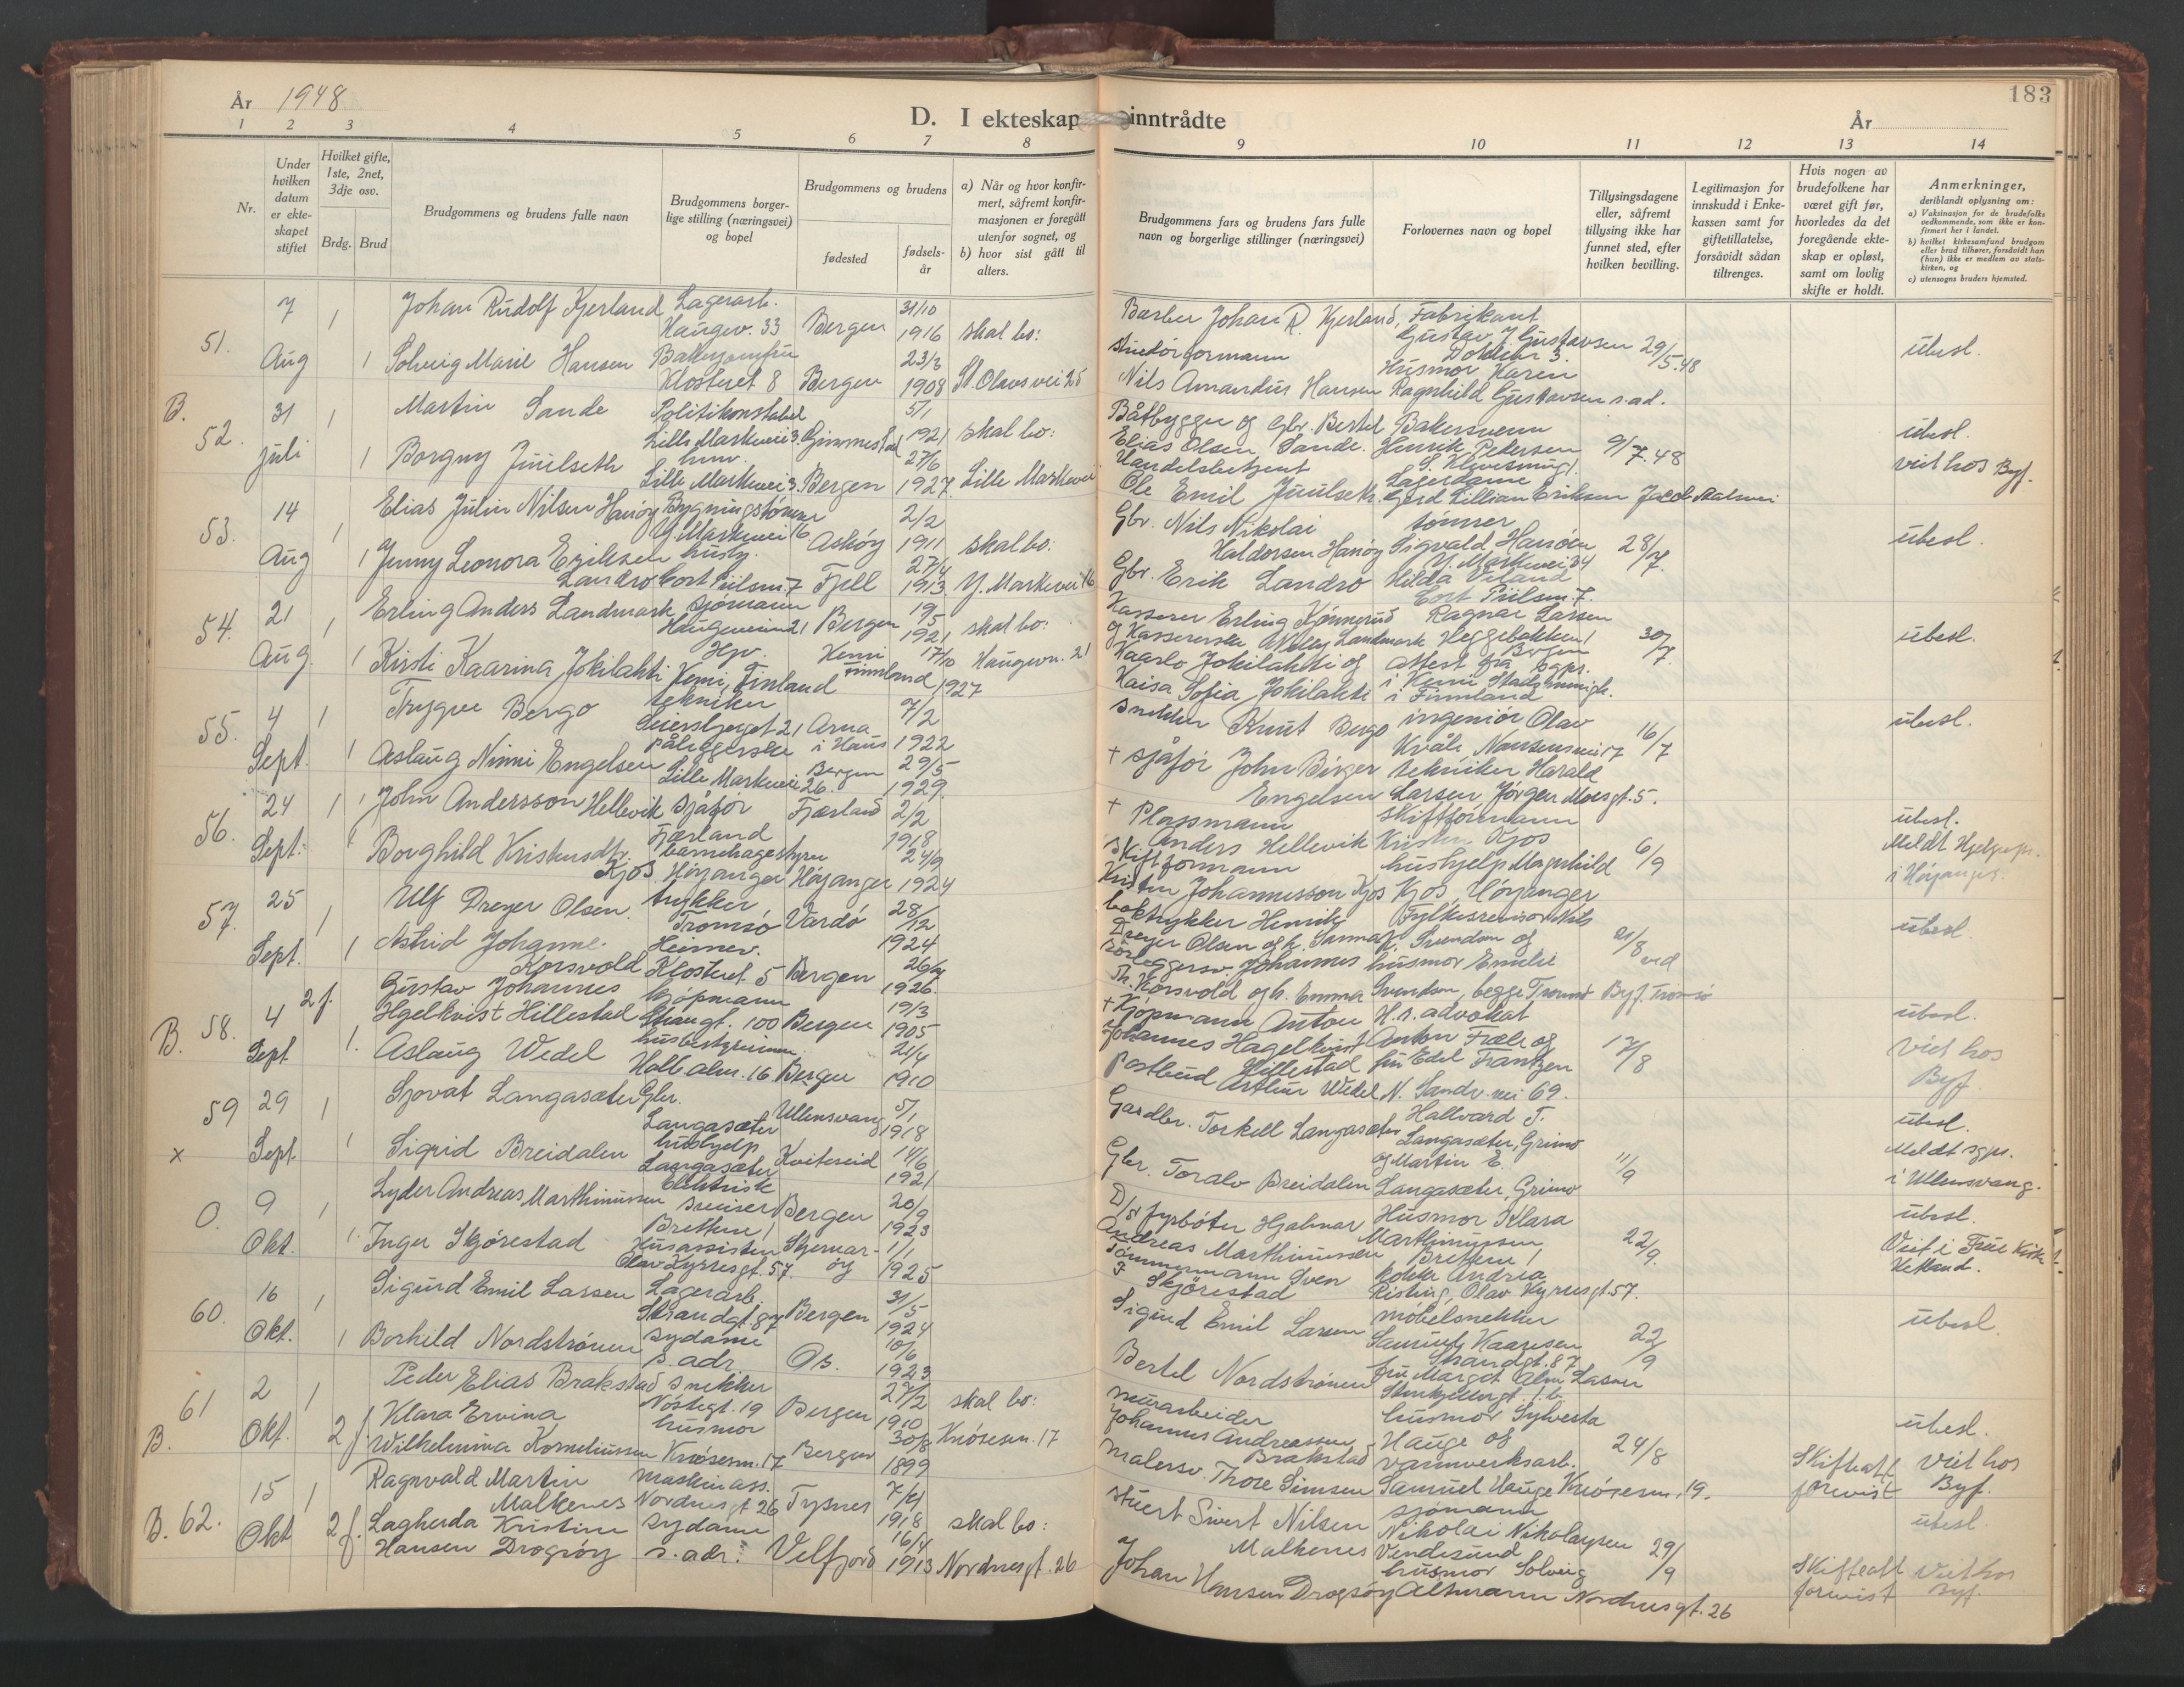 År 1948
D. I ekteskap inntrådte
År
183
1 2 3 4 5 6 7 8 9 10 11 12 13 14
Nr.
Under hvilken datum er ekteskapet stiftet
Hvilket gifte, 1ste, 2net, 3dje osv.
Brdg. Brud
Brudgommens og brudens fulle navn
Brudgommens borgerlige stilling (næringsvei) og bopel
Brudgommens og brudens
fødested
fødselsår
a) Når og hvor konfirmert, såfremt konfirmasjonen er foregått utenfor sognet, og
b) hvor sist gått til alters.
Brudgommens fars og brudens fars fulle navn og borgerlige stillinger (næringsvei)
Forlovernes navn og bopel
Tillysingsdagene eller, såfremt tillysing ikke har funnet sted, efter hvilken bevilling.
Legitimasjon for innskudd i Enkekassen samt for giftetillatelse, forsåvidt sådan tiltrenges.
Hvis nogen av brudefolkene har været gift før, hvorledes da det foregående ekteskap er opløst, samt om lovlig skifte er holdt.
Anmerkninger, deriblandt oplysning om:
a) Vaksinasjon for de brudefolks vedkommende, som ikke er konfirmert her i landet.
b) hvilket kirkesamfund brudgom eller brud tilhører, forsåvidt han (hun) ikke er medlem av statskirken, og
c) utensogns bruders hjemsted.
51. 7 Aug 1 Johan Rudolf Kjerland Lagerarb. Haugev. 33 Bergen 31/10 1916 skal bo:
Barber Johan R. Kjerland, Fabrikant Gustav J. Gustavsen 29/5.48 ubesl.
1 Solveig Marie Hansen Klosteret 8 Bergen 1908 St. Olavs vei 25
Nils Amandus Hansen Husmor Karen Ragnhild Gustavsen s.ad.
B. 52. 31 juli 1 Martin Sande Politikonstabel Lille Markevei 3. Gimmestad 5/1 1921 skal bo:
Båtbygger og Gbr. Bertel Elias Olsen Sande. Bakersvenn Henrik Pedersen 9/7.48 ubesl.
1 Borgny Juulseth Lille Markevei 3 Bergen 27/6 1927. Lille Markevei
Handelsbetjent Ole Emil Juulseth. Lagerdame Gerd Lillian Eriksen viet hos Byf.
53. 14 Aug 1 Elias Julin Nilsen Hanøy Bygningstømrer Y. Markevei 16 Askøy 2/2 1911 skal bo:
Gbr. Nils Nikolai Haldorsen Hanøy tømrer Sigvald Hanøen Y. Markevei 34 28/7. ubesl.
1 Jenny Leonora Eriksen Landro Cort Piilsm. 7 Fjell 27/4 1913 Y. Markevei 16
Gbr. Erik Landro Hilda Cort Piilsm. 7.
54. 21 Aug 1 Erling Anders Landmark sjømann Haugeveien 21 Bergen 19/5 1921 skal bo:
Kasserer Erling og Kassererske Landmark Ragnar Larsen Heggebakken 1 Bergen 30/7. ubesl.
1 Kirsti Kaarina Jokilahti Hjv. Kemi, Finland Kemi Finnland 17/10 1927 Haugevn. 21
Kaarlo Jokilahti og Kaisa Sofia Jokilahti attest fra sgpr. i Kemi i Finnland
55. 4 Sept. 1 Trygve Bergo tekniker 21 Arna i Haus 7/2 1922
snekker Knut Bergo ingeniør Olav Kvåle Nansens vei 17 16/7 ubesl.
1 Aslaug Ninni Engelsen påleggerske Lille Markevei 26. Bergen 29/5 1929.
+ sjåfør John Birger Engelsen tekniker Harald Larsen, Jørgen Moesgt. 5.
56. 24 Sept. 1 John Andersson Hellevik sjåfør Fjærland Fjærland 2/2 1918
+ Plassmann Anders Hellevik skiftformann Kristen Kjos 6/9 ubesl.
1 Borghild Kristensdtr. Kjos barnehagestyrer Høyanger Høyanger 24/9 1924
Skiftformann Kristen Johannesson Kjos hushjelp Magnhild Kjos, Høyanger Meldt i Høyanger.
57. 25 Sept. 1 Ulf Dreyer Olsen trykker Tromsø Vardø 28/12 1924
boktrykker Henrik Dreyer Olsen og h. Sanna Fylkesrevisor Nils Svendsen og 21/8 ved ubesl.
1 Astrid Johanne Korsvold Heimev. Klosteret 5 Bergen 1926.
Th. Korsvold og h. Emma husmor Emelie Svendsen, begge Tromsø Byf. Tromsø
B. 58. 4 Sept 2 f. Gustav Johannes Hgelkvist Hillestad kjøpmann Strangt. 100 Bergen 19/3 1905
+ Kjøpmann Anton Johannes Hagelkvist Hillestad H.r. advokat Anton Fræle og 17/8 ubesl.
1. Aslaug Wedel husbestyrerinne 16 Bergen 21/4 1910
Postbud Arthur Wedel fru Edel Frantzen N. Sandv. vei 69. viet hos Byf.
59 29 Sept. 1 Sjovat Langasæter Gbr. Langasæter Ullensvang 5/1 1918
Gardbr. Torkell Langasæter Hallvard T. Langasæter, Grimo 11/9 ubesl.
x 1 Sigrid Breidalen hushjelp Langasæter Kviteseid 14/6 1921
Gbr. Toralv Breidalen og Martin E. Langasæter, Grimo Meldt sgpr. i Ullensvang.
0. 9 Okt. 1 Lyder Andreas Marthinussen Elektrisk sveiser Brettene 1 Bergen 20/9 1923
D/s fyrbøter Hjalmar Andreas Marthinussen Husmor Klara Marthinussen Brettene 1 22/9. ubesl.
1. Inger Skjørestad Husassistent Olav Kyrresgt. 57. Stjernarøy 1/1 1925
Tømmermann Sven Skjørestad kokke Andrea Risting, Olav Kyrresgt. 57. Viet i Frue Kirke Hetland.
60. 16 Okt. 1 Sigurd Emil Larsen Lagerarb. Strandgt. 87 Bergen 31/5 1924
Sigurd Emil Larsen møbelsnekker Samuel Kaaresen Strandgt. 87 22/9 ubesl.
1 Borhild Nordstrønen sydame s. adr. Os. 10/6 1923
Bertel Nordstrønen fru Margit Alm Larsen
B. 61 2 Okt. 1 Peder Elias Brakstad snekker Nøstegt. 19 Bergen 27/2 1910 skal bo:
murarbeider Johannes Andreassen Brakstad husmor Sylvesta Hauge og 24/8 ubesl.
2 f. Klara Ervina Wilhelmina Korneliussen husmor Knøsesm. 17 Bergen 30/8 1899 Knøsesm. 17
Malersv. Thore Simsen vannverksarb. Samuel Hauge Knøsesm. 19. Skifteatt forevist viet hos Byf.
B. 62. 15 Okt 1 Ragnvald Martin Malkenes maskinass. Nordnesgt 26 Tysnes 7/4 1918 skal bo:
stuert Sivert Nilsen Malkenes sjømann Nikolai Nikolaysen 29/9 ubesl
2 f. Lagherda Kristine Hansen Drogsøy sydame s. adr. Velfjord 16/4 1913 Nordnesgt. 26
Johan Hansen Drogsøy husmor Solveig Altmann Nordnesgt. 26 Skifteatt forevist Viet hos Byf.